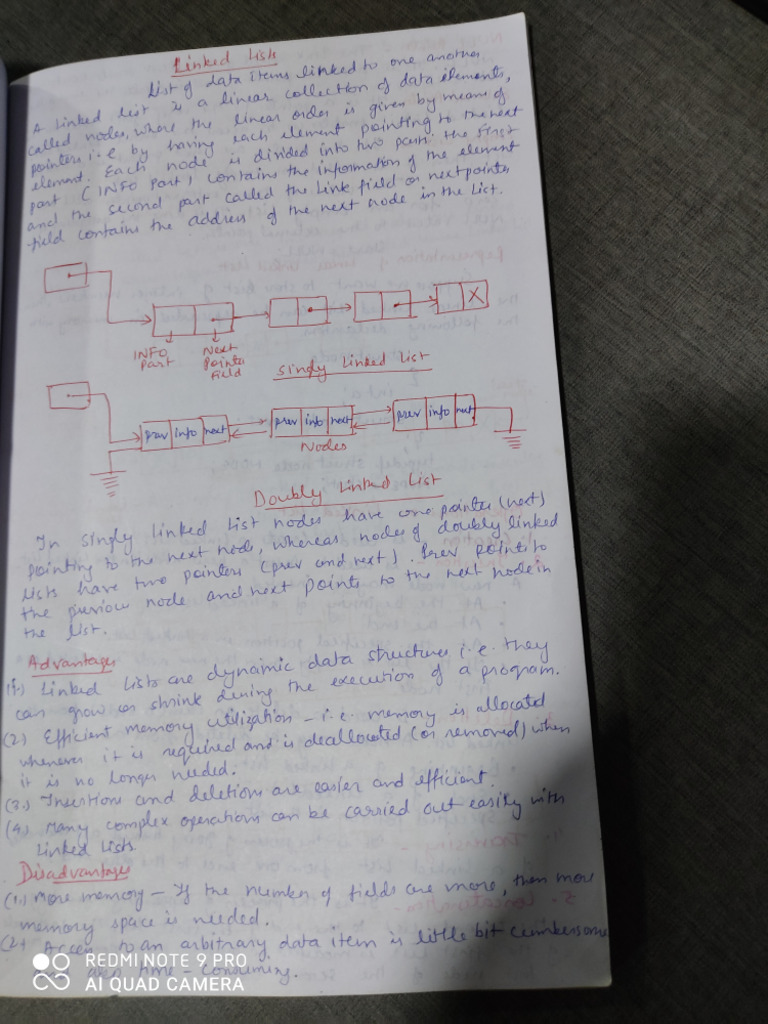 Linked Lists
List of data items linked to one another
A linked list is a linear collection of data elements,
called nodes, where the linear order is given by means of
pointers i.e by having each element pointing to the next
element. Each node is divided into two parts. the first
part (INFO Part) contains the information of the element
and the second part called the Link field or nextpointer
field contains the address of the next node in the List.
X
INFO Part
Next Pointer Field
Singly Linked List
prev info next
prev info next
prev info next
Nodes
Doubly Linked List
In singly linked list nodes have one pointer (next)
pointing to the next node, whereas nodes of doubly linked
lists have two pointers (prev and next). Prev points to
the previous node and next points to the next node in
the list.
Advantages
(1.) Linked Lists are dynamic data structures i.e. they
can grow or shrink during the execution of a program.
(2.) Efficient memory utilization - i.e. memory is allocated
whenever it is required and is deallocated (or removed) when
it is no longer needed.
(3.) Insertions and deletions are easier and efficient.
(4.) Many complex operations can be carried out easily with
Linked Lists.
Disadvantages
(1.) More memory - If the number of fields are more, then more
memory space is needed.
(2.) Access to an arbitrary data item is little bit cumbersome
and also time - consuming.
REDMI NOTE 9 PRO
AI QUAD CAMERA